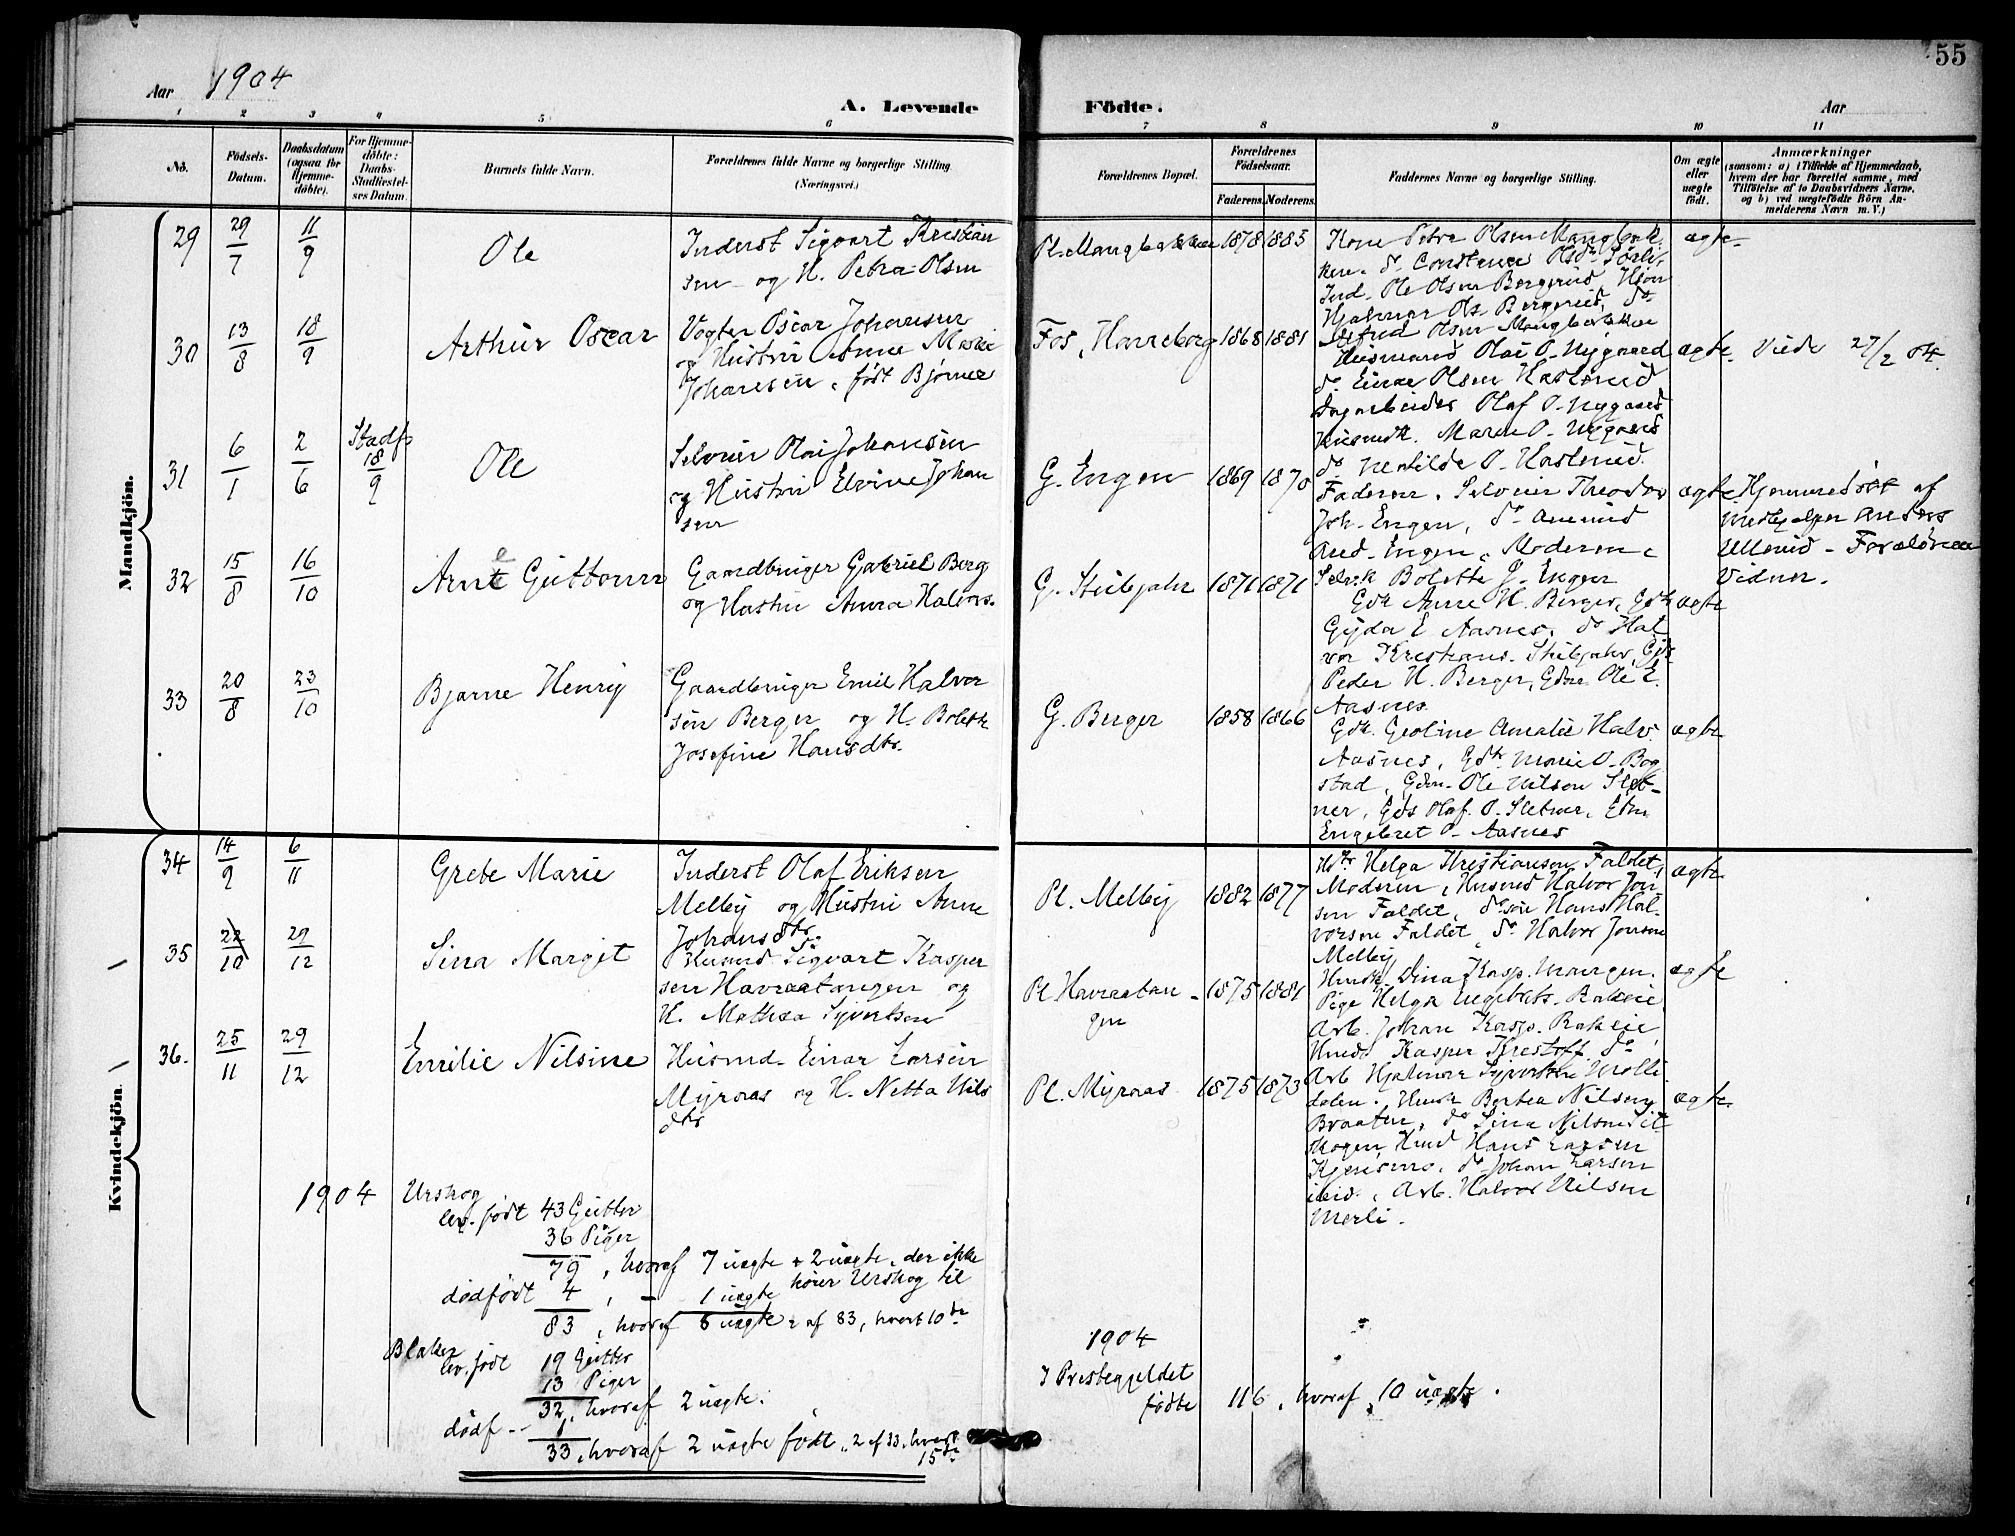 55
Aar 1904
A. Levende
Födte.
Aar
1 2 3 4 5 6
7 8 9 10 11
No.
Födsels-
Datum.
Daabsdatum
(ogsaa for
Hjemme-
döbte).
For Hjemme-
döbte:
Daabs-
Stadfæstel-
ses Datum.
Barnets fulde Navn.
Forældrenes fulde Navne og borgerlige Stilling.
(Næringsvei.)
Forældrenes Bopæl.
Forældrenes
Födselsaar.
Faderens.
Moderens.
Faddernes Navne og borgerlige Stilling.
Om ægte
eller
uægte
født.
Anmærkninger
(saasom: a) i Tilfælde af Hjemmedaab,
hvem der har forrettet samme, med
Tilföielse af to Daabsvidners Navne,
og b) ved uægtefödte Börn An-
melderens Navn m. V.)
Mandkjön.
29 29/7 11/9 Ole
Inderst Sigvart Kristian
sen og H. Petra Olsen
Pl. Mangbakken 1878 1883
Kone Petra Olsen Mangbak-
ken. do Constance
Ind. Ole Olsen Bergerud,
Hjalmar Ols. Bergerud, do
Olsen Mangbakken
ægte
30 13/8 18/9 Arthur Oscar
Vogter Oscar Johansen
og Hustru Anne Marie
Johansen, født Bjørner
Fos, Hanneborg 1868 1881
Husmand Olai O. Nygaard
do Einar Olsen Haslerud
Dagarbeider Olaf O. Nygaard
Husmdk. Maren O. Nygaard
do Matilde O. Haslerud.
ægte. Viede 27/2 04.
31 6/1 2/6 Stadf. 18/9 Ole
Selveier Olai Johansen
og Hustru Elvine Johan
sen
G. Engen 1869 1870
Faderen, Selveier Theodor
Joh. Engen, do Amund
And. Engen, Moderen,
Selvk Bolette G. Engen
ægte
Hjemmedøbt af
Medhjelper Anders
Ullerud - Forældrene
Vidner.
32 15/8 16/10 Arne Guttorm
Gaardbruger Gabriel Berg
og Hustru Anna Halvors.
G. Skibjahr 1871 1871
Gdk Anne H. Berger, Gdk
Gyda E Aasnes, do Hal
vor Kristians. Skibjahr,
Peder H. Berger, Gdm Ole E.
Aasnes
ægte
33 20/8 23/10 Bjarne Henry
Gaardbruger Emil Halvor
sen Berger og H. Bolette
Josefine Hansdtr.
G. Berger 1858 1866
Gdk. Geoline Amalie Halv.
Aasnes, Gdk Marie O. Bog
stad, Gdm. Ole Nilsen Slet-
ner, Gds Olaf O. Sletner, Gdm
Engebret O. Aasnes
ægte
Kvindekjön.
34 14/9 6/11 Grete Marie
Inderst Olaf Eriksen
Melby og Hustru Anne
Johansdtr.
Pl. Melby 1882 1877
Helga Kristiansen Faldet,
Moderen, Husmd Halvor Jon
sen Faldet, do søn Hans Hal-
vorsen Faldet, do Halvor Jonsen
Melby
ægte
35 22/10 29/12 Sina Margit
Husmd Sigvart Kasper
sen Havraatangen og
H. Mathea Syvertsen
Pl. Havraatan-
gen 1875 1881
Husmk. Dina Kasp. Mangen.
Pige Helga Engebrets. Bakeie
Arb. Johan Kasp. Bakeie,
Husmd Kasper Kristoff. do
Arb Hjalmar Syvertsen Molli
dalen.
ægte
36. 25/11 29/12 Emilie Nilsine
Husmd. Einar Larsen
Myraas og H. Netta Nils
dtr
Pl. Myraas 1875 1873
Husmk Bertea Nilsen
Braaten, do Sina Nilsen
Mogen, Husmd Hans Larsen
Kjensmo, do Johan Larsen
ibid., Arb. Halvor Nilsen
Merli.
ægte.
1904 Urskog
lev. født 43 Gutter
36 Piger
79, hvoraf 7 uægte + 2 uægte, der ikke
hører Urskog til
dødfødt 4, - 1 uægte
83, hvoraf 8 uægte : af 83, hvert 10de
Blaker
lev. født 19 Gutter
13 Piger
32, hvoraf 2 uægte.
dødf -- 1
33, hvoraf 2 uægte født, 2 af 33, hvert
15de
1904
I Prestegjeldet
fødte 116, hvoraf 10 uægte.